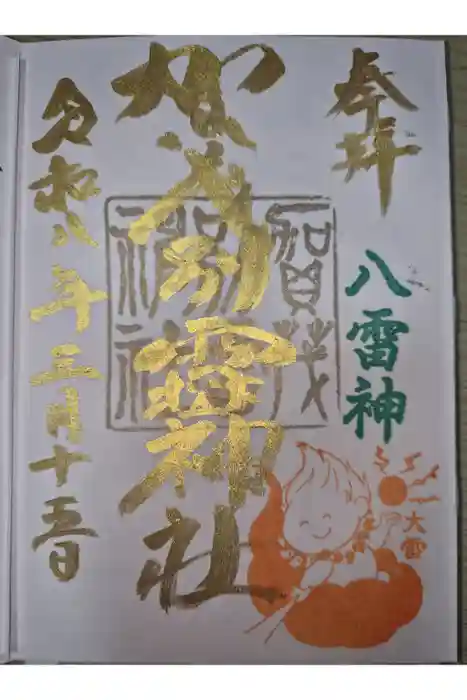 奉拝
八雷神
大雷
賀茂別雷神社
賀茂
別雷
神社
令和八年三月十五日